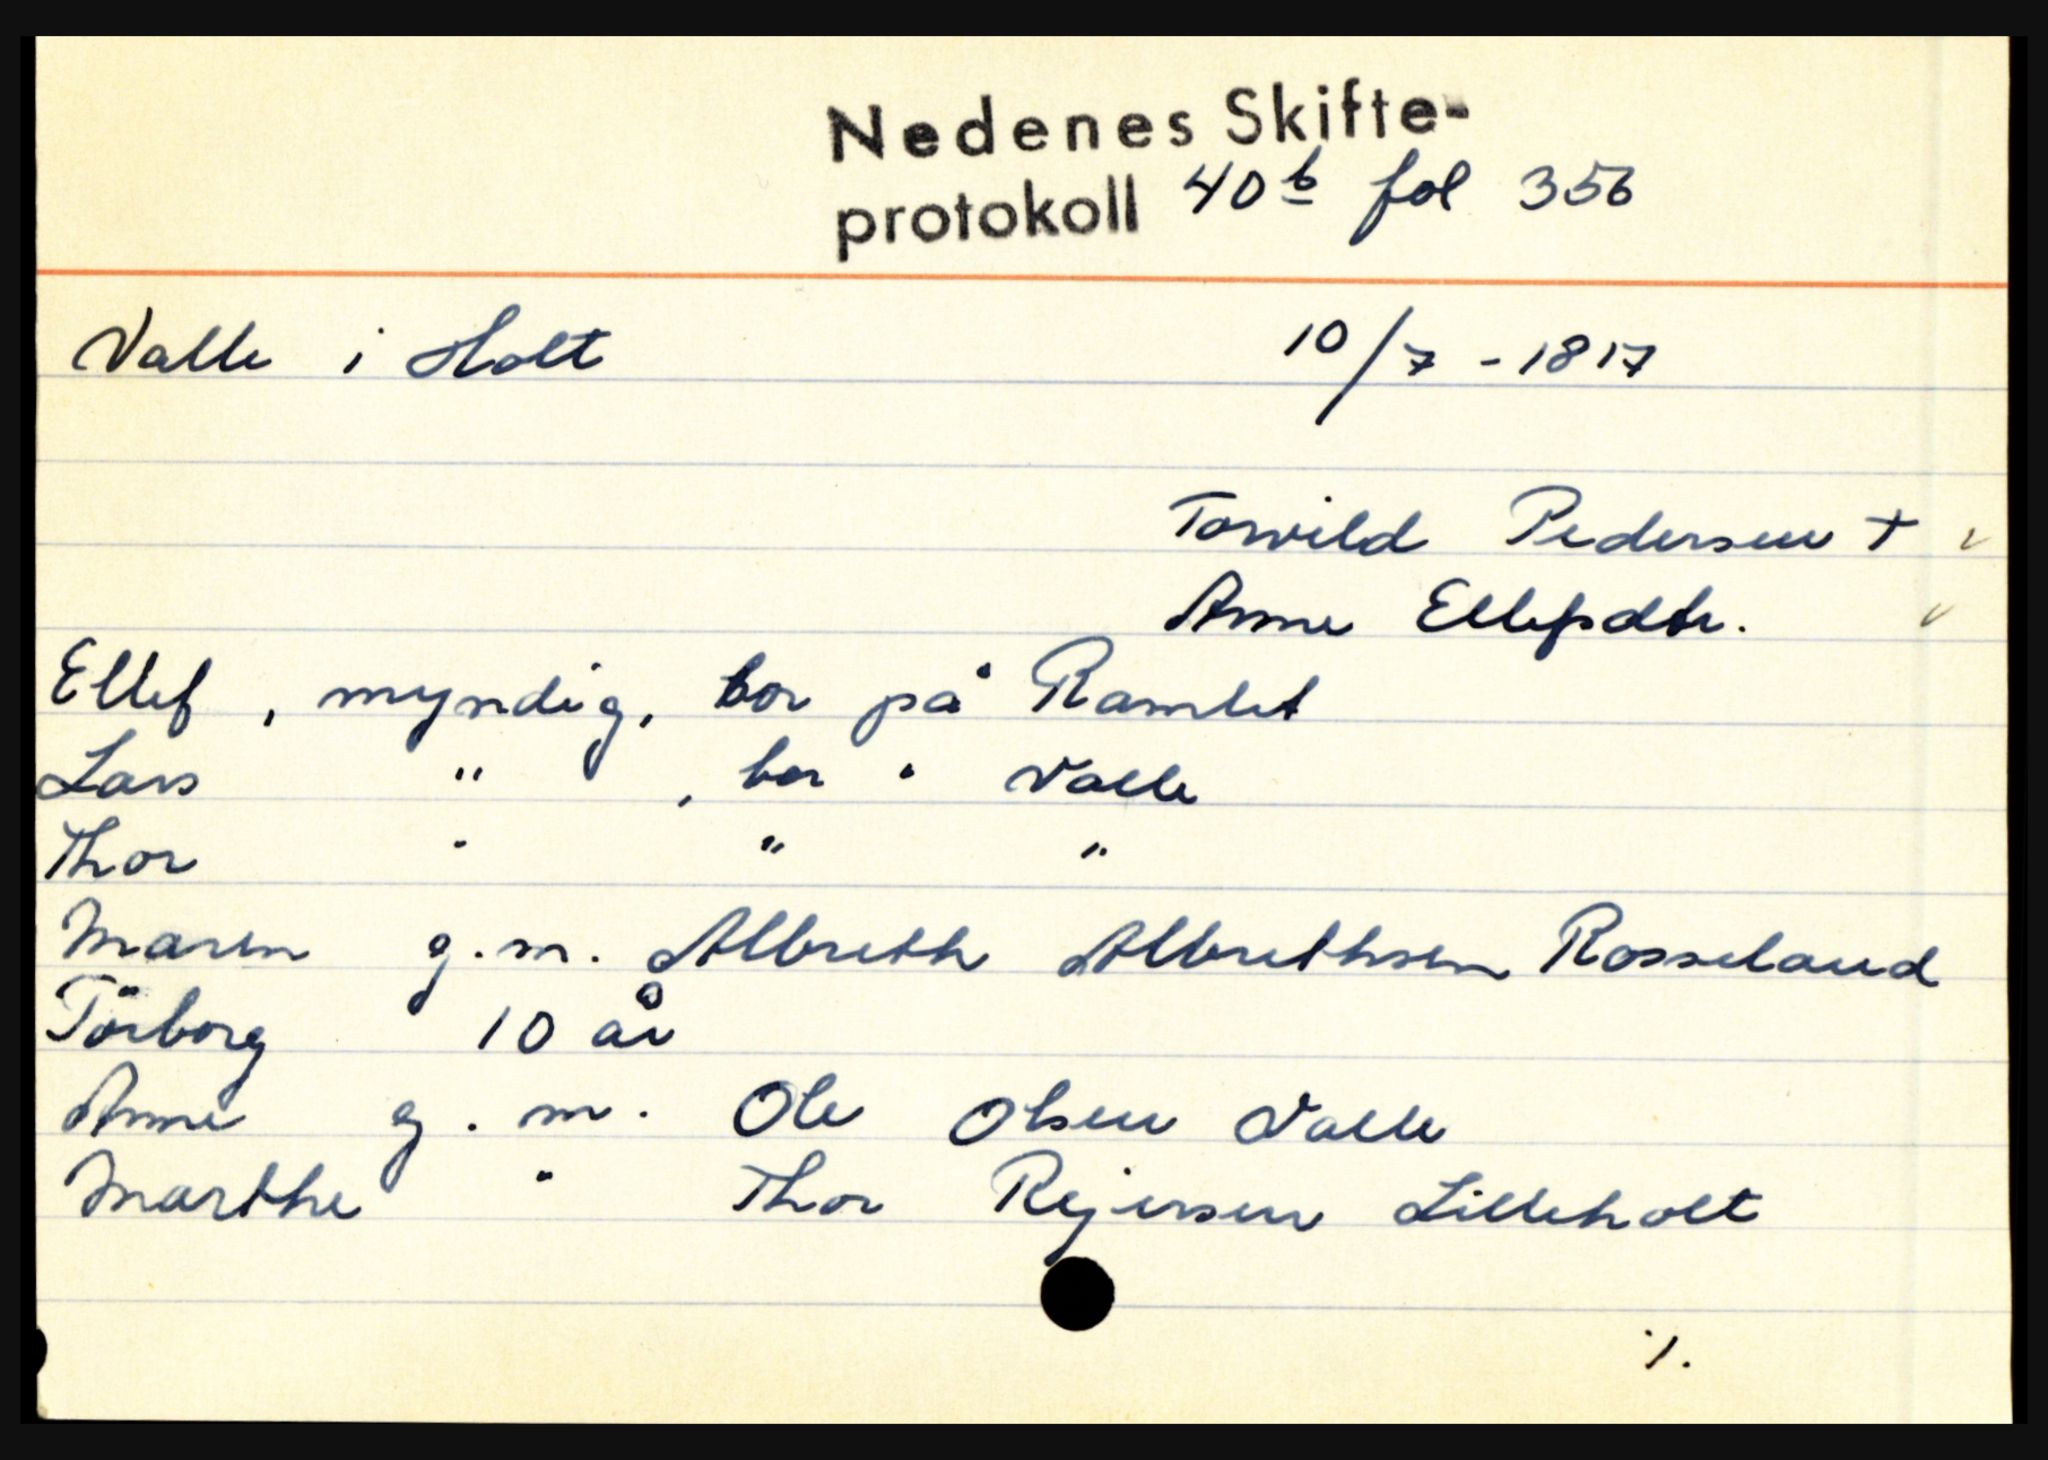 Nedenes Skifte-
protokoll 40b fol 356
Valle i Holt 10/7 - 1817
Torvild Pedersen +
Anne Ellefsdtr.
Ellef, myndig, bor på Ramlet
Lars " , bor " Valle
Thor " " "
Maren g.m. Albreth Albrethsen Rosseland
Torborg 10 år
Anne g.m. Ole Olsen Valle
Marthe " Thor Rejersen Lilleholt
./.